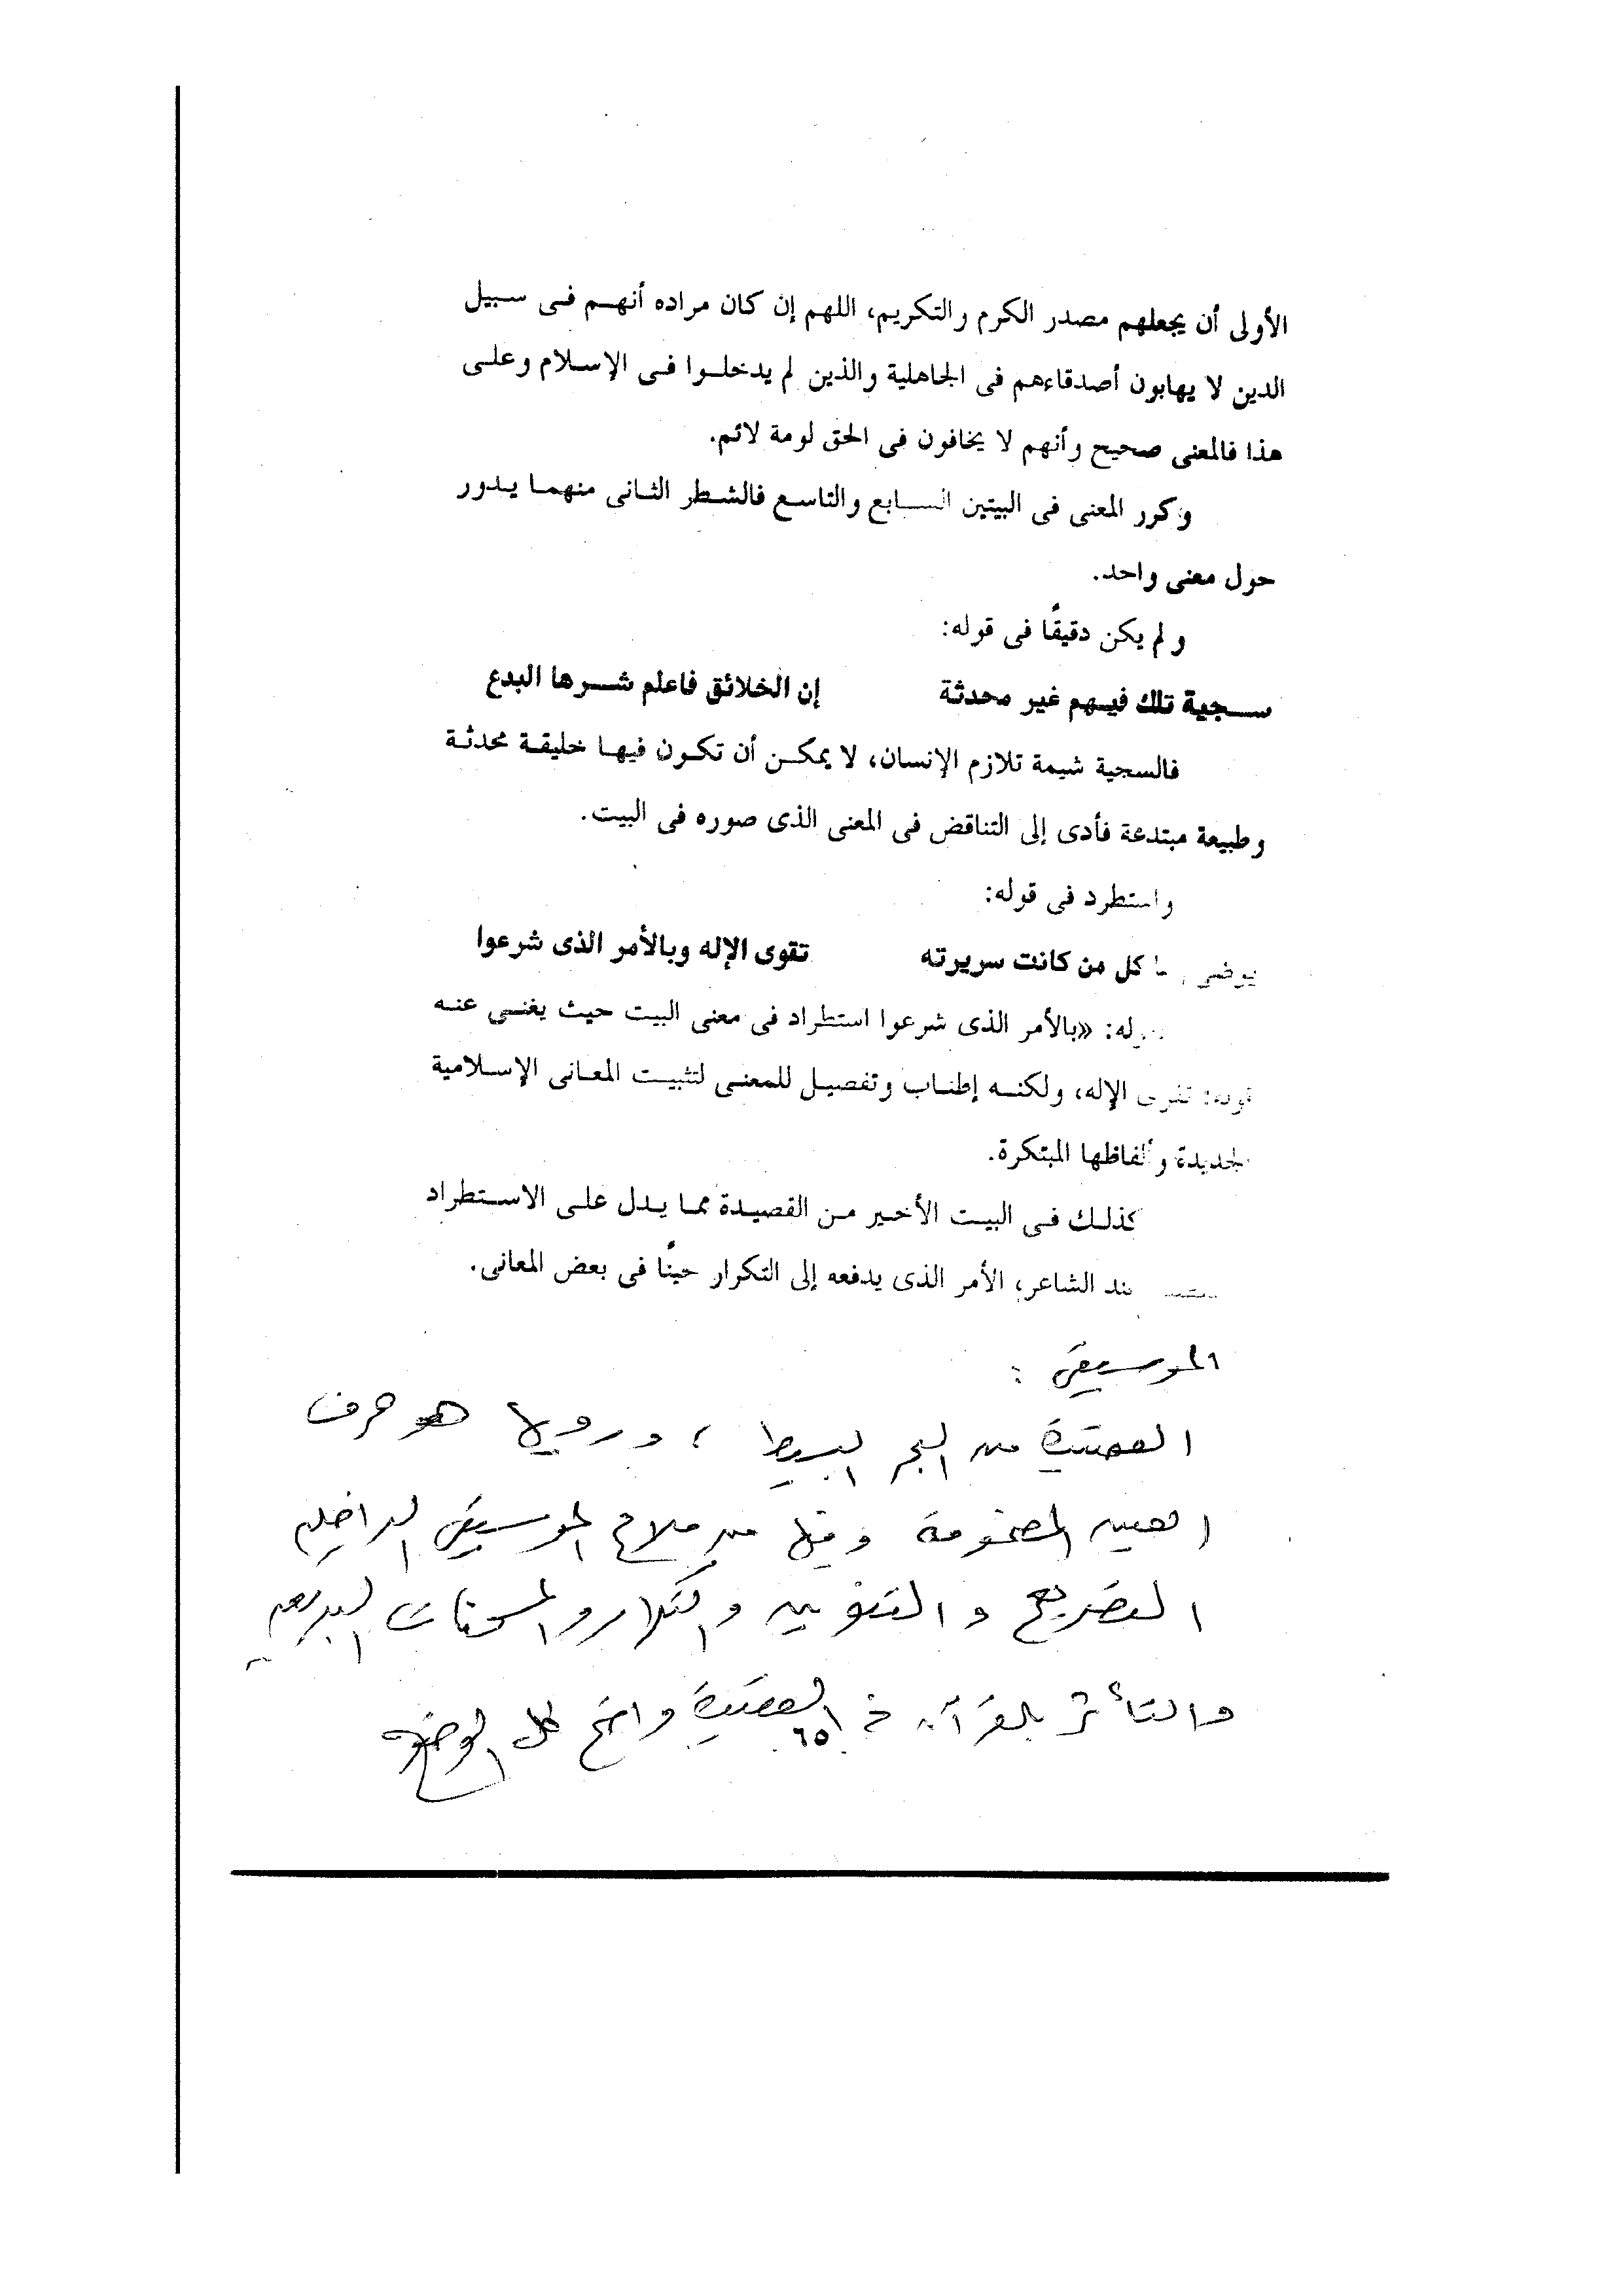 الأولى أن يجعلهم مصدر الكرم والتكريم، اللهم إن كان مراده أنهم فى سبيل
الدين لا يهابون أصدقاءهم فى الجاهلية والذين لم يدخلوا فى الإسلام وعلى
هذا فالمعنى صحيح وأنهم لا يخافون فى الحق لومة لائم.
وكرر المعنى فى البيتين السابع والتاسع فالشطر الثانى منهما يدور
حول معنى واحد.
ولم يكن دقيقًا فى قوله:
سجية تلك فيهم غير محدثة إن الخلائق فاعلم شرها البدع
فالسجية شيمة تلازم الإنسان، لا يمكن أن تكون فيها خليقة محدثة
وطبيعة مبتدعة فأدى إلى التناقض فى المعنى الذى صوره فى البيت.
واستطرد فى قوله:
كل من كانت سريرته تقوى الإله وبالأمر الذى شرعوا
«بالأمر الذى شرعوا استطراد فى معنى البيت حيث يغنى عنه
قوله: تقوى الإله، ولكنه إطناب وتفصيل للمعنى لتثبيت المعانى الإسلامية
الجديدة وألفاظها المبتكرة.
كذلك فى البيت الأخير من القصيدة مما يدل على الاستطراد
عند الشاعر، الأمر الذى يدفعه إلى التكرار حينًا فى بعض المعانى.
الموسيقى :
القصيدة من البحر البسيط ، ورويها هو حرف
العين المضمومة وفيها من ملامح الموسيقى الداخلية
التصريع والتنوين والتكرار والمحسنات البديعية
والتأثر بالقرآن فى القصيدة واضح كل الوضوح
٦٥